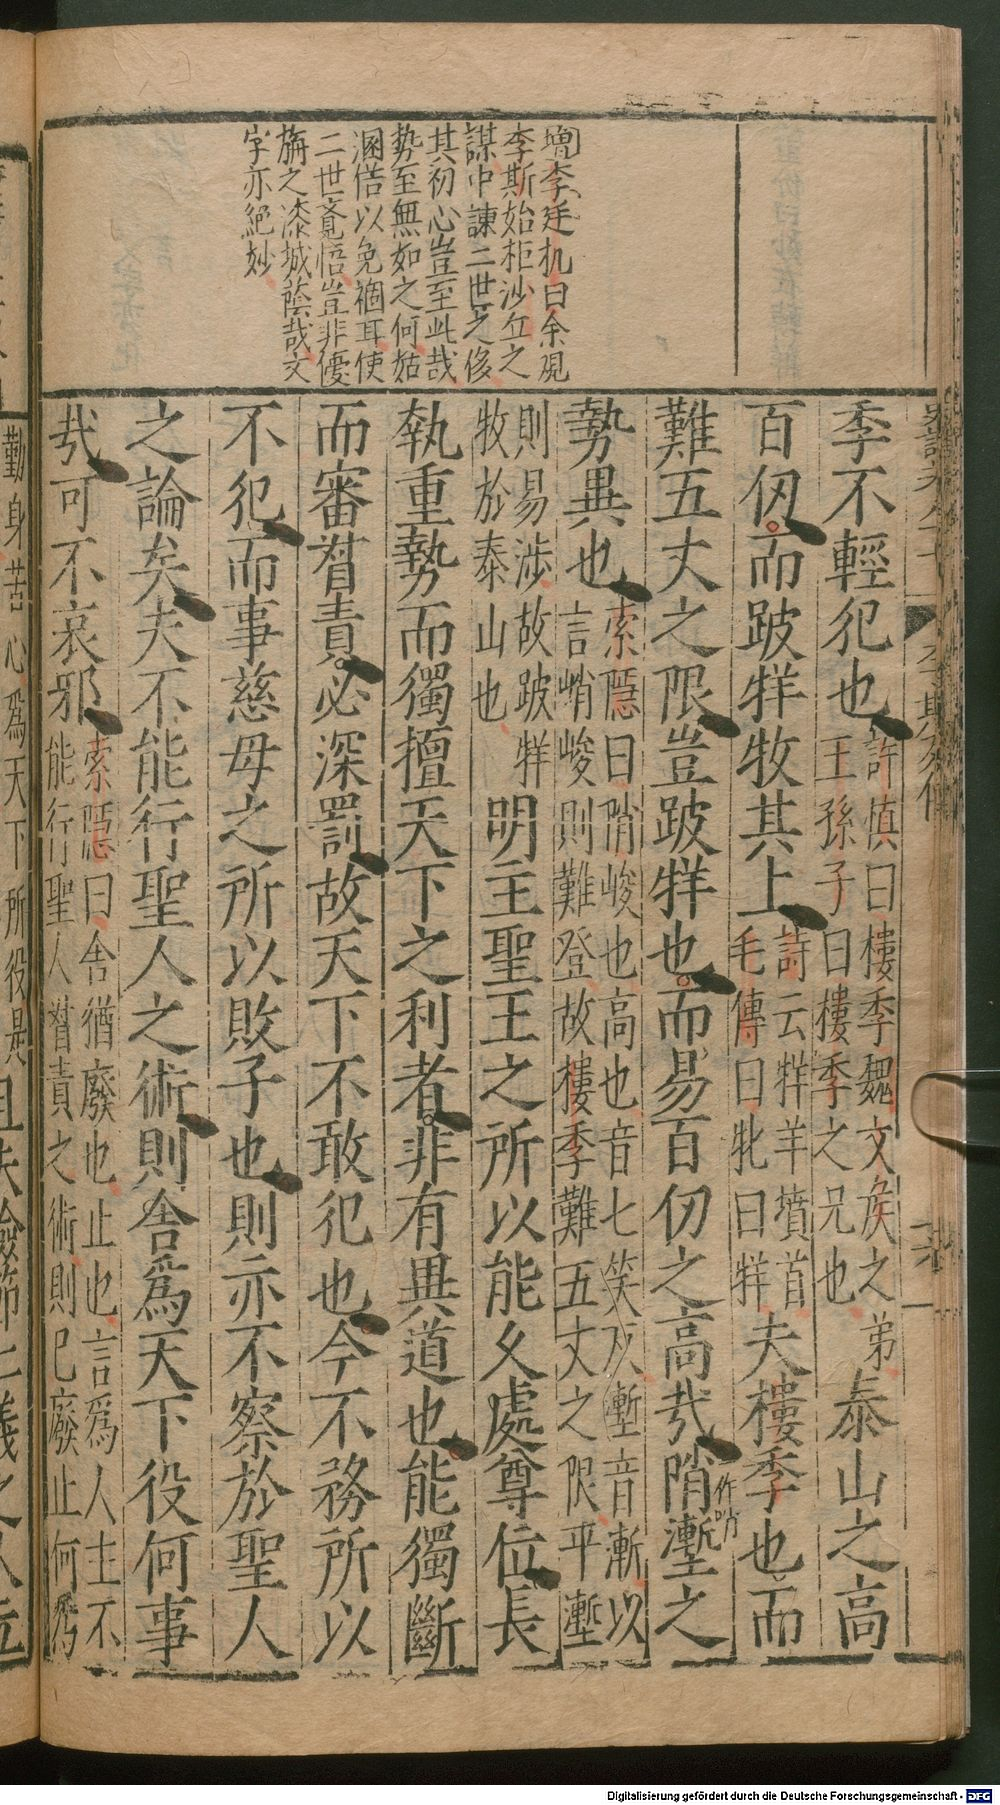 增李廷机曰余覌
李斯始柜沙丘之
謀中諌二世之侈
其初心豈至此哉
勢至無如之何姑
溷佸以免禍耳使
二世竟悟豈非優
旃之漆城蔭哉文
字亦絕妙
季不輕犯也許慎曰樓季魏文矦之弟王孫子曰樓季之兄也泰山之高
百仭而跛牂牧其上詩云牂羊墳首毛傳曰牝曰牂夫樓季也而
難五丈之限豈跛牂也而易百仞之高㢤陗塹之
作哨
勢異也索隱曰陗峻也高也音七笑反塹音漸以言峭峻則難登故樓季難五丈之限平塹
則易涉故跛牂牧於泰山也明主聖王之所以能乆處尊位長
執重勢而獨擅天下之利者非有異道也能獨斷
而審督責必深罰故天下不敢犯也今不務所以
不犯而事慈母之所以敗子也則亦不察於聖人
之論矣夫不能行聖人之術則舍爲天下役何事
㢤可不哀邪索隱曰舍猶廢也止也言爲人主不能行聖人督責之術則已廢止何爲
勤身苦心爲天下所役是
李斯列傳
Digitalisierung gefördert durch die Deutsche Forschungsgemeinschaft - DFG